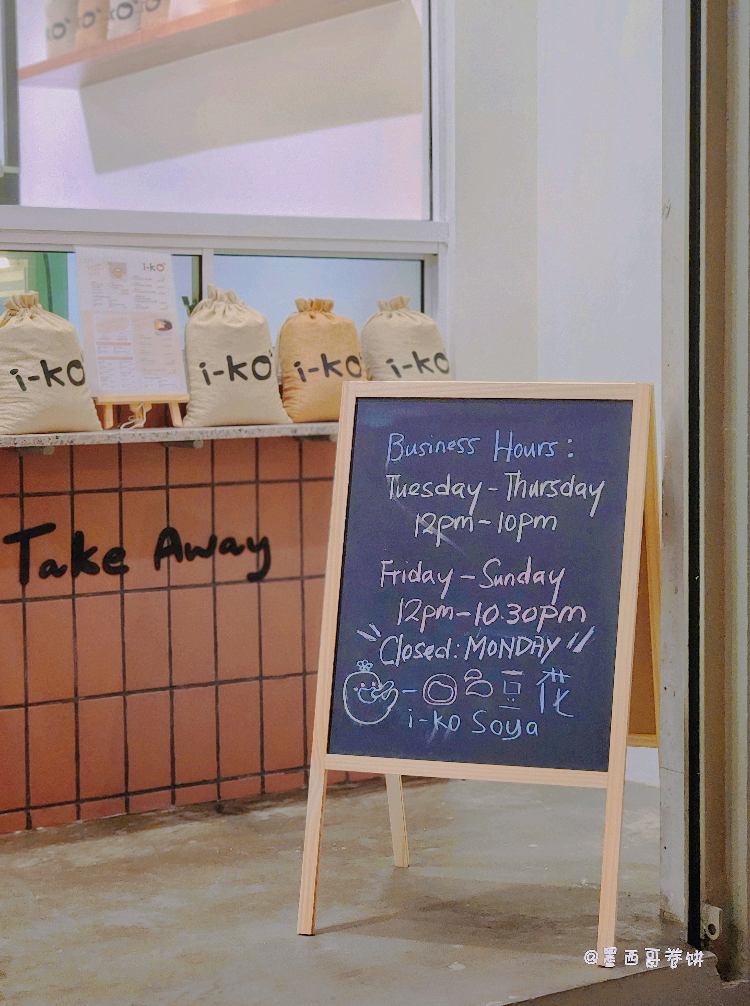 i-KO
i-KO
i-KO
i-KO
i-KO
Take Away
Business Hours:
Tuesday - Thursday
12pm - 10pm
Friday - Sunday
12pm - 10.30pm
Closed: MONDAY
豆花
i-KO Soya
@墨西哥卷饼